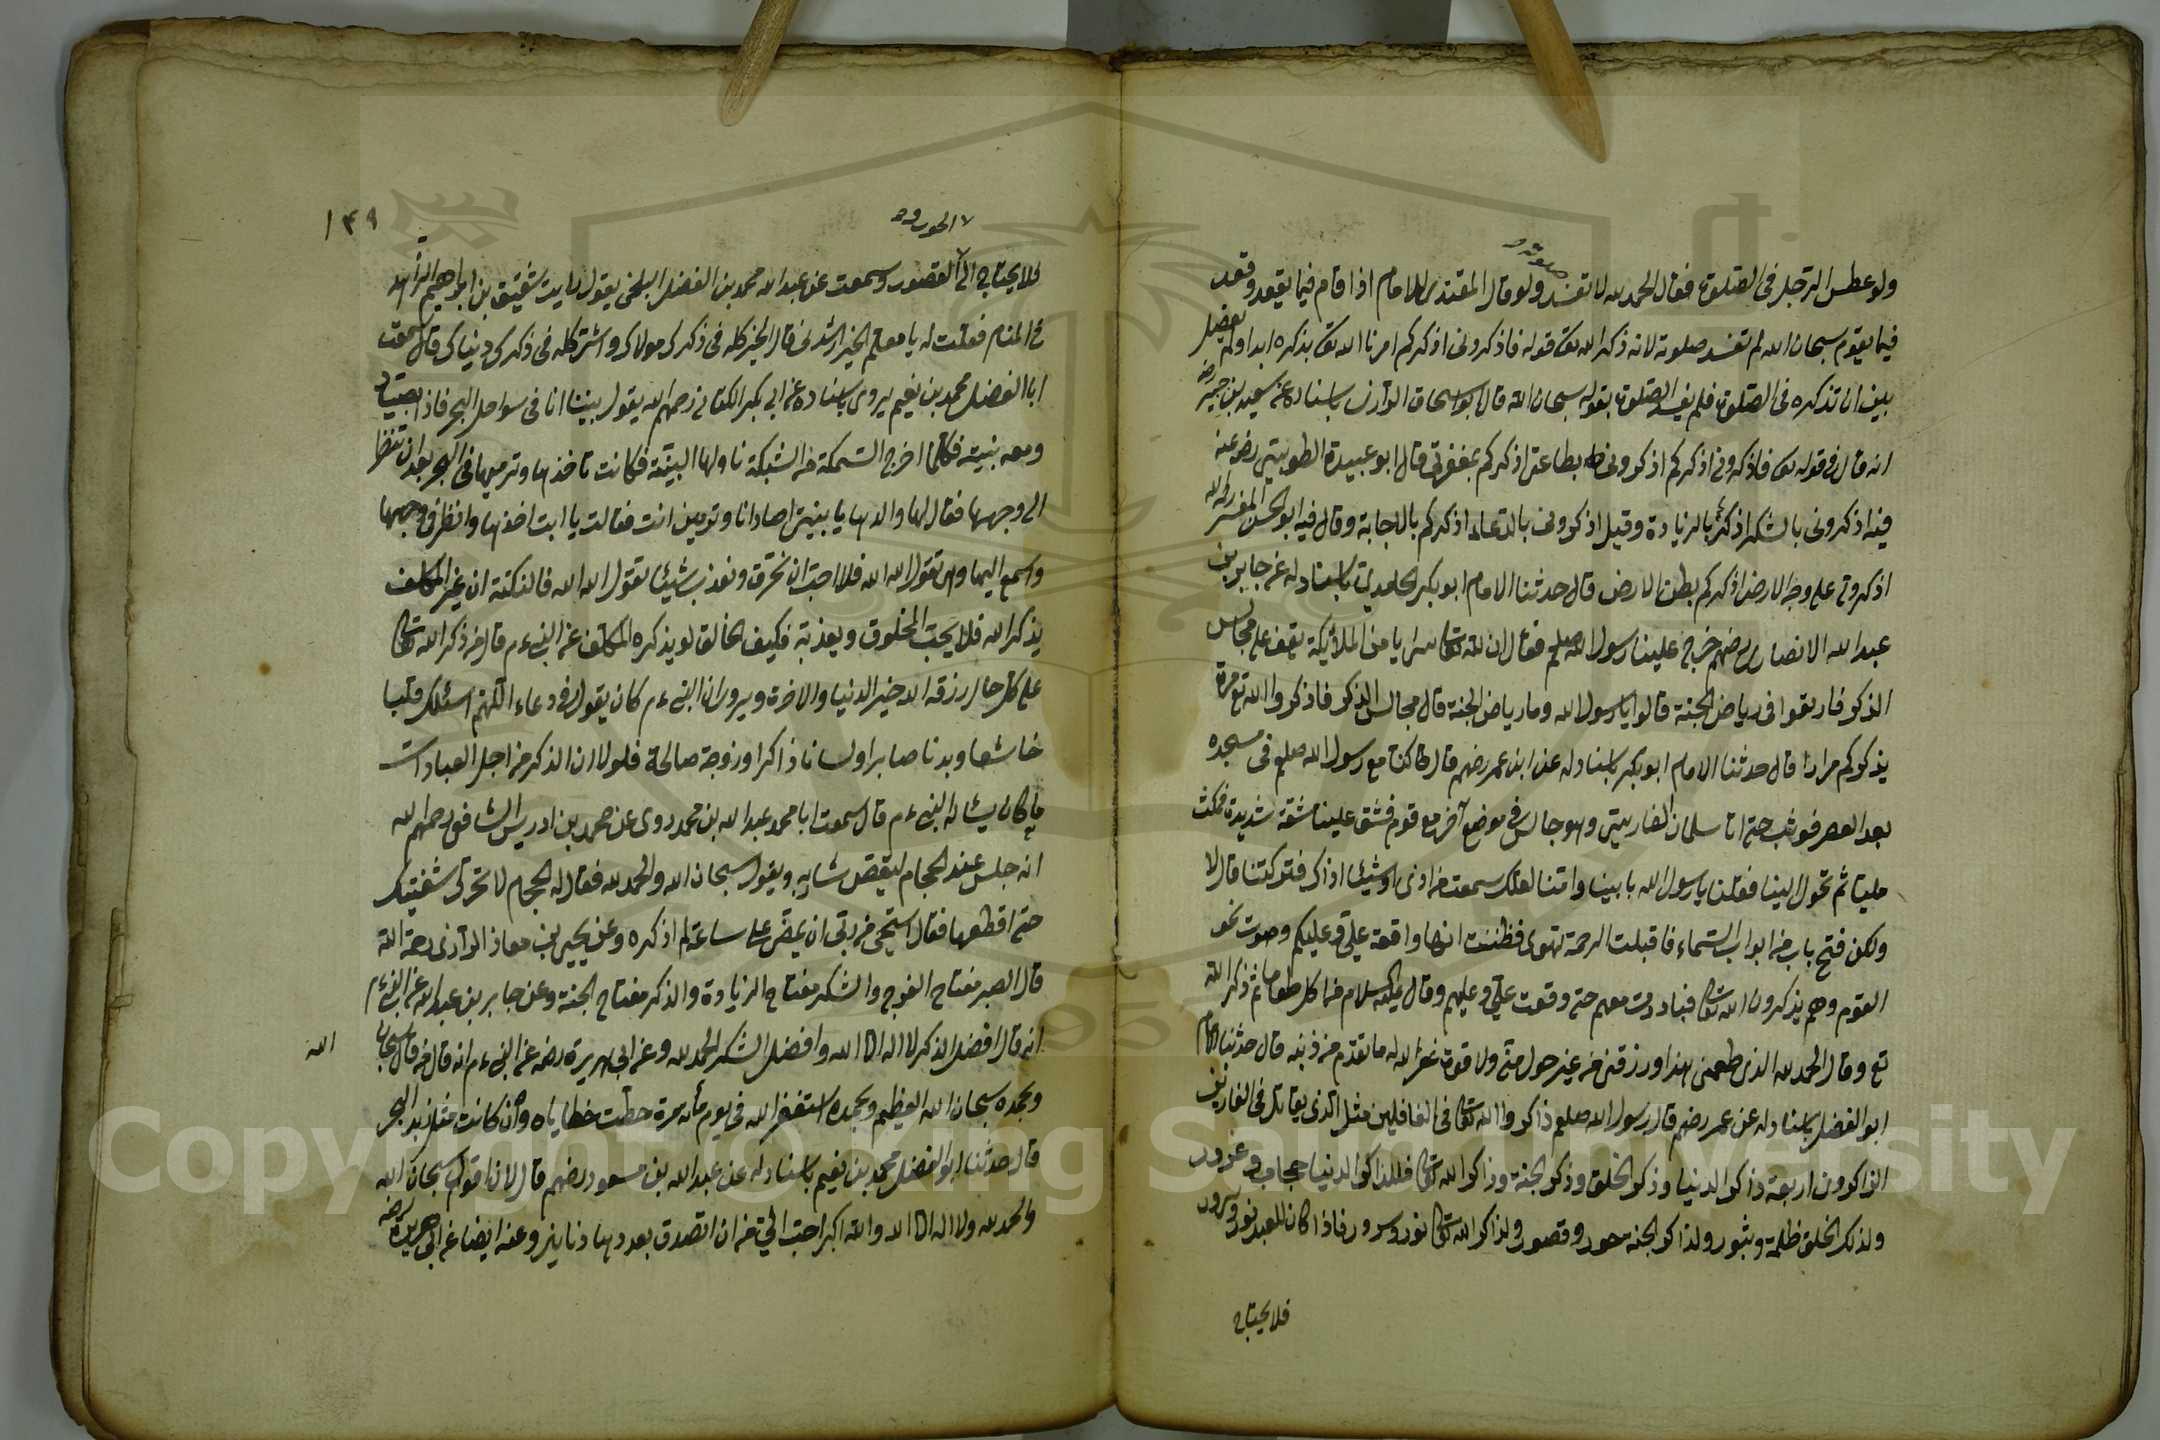 صلوته
ولو عطس الرجل فى الصلوة فقال الحمد لله لا تفسد ولو قال المقتدى للامام اذا قام فيما يقعد وقعد
فيما يقوم سبحان الله لم تفسد صلوته لانه ذكر الله تع قوله فاذكرونى اذكركم امرنا الله تع بذكره ابدا ولم يفصل
بين ان تذكره فى الصلوة فلم يفسد الصلوة بقوله سبحان الله قال ابو اسحاق الوراق باسناده عن سعيد بن جبير رضه
انه قال فى قوله تع فاذكرونى اذكركم اذكرونى بطاعتى اذكركم بمغفرتى قال ابو عبيدة رضى عنه
فيه اذكرونى بالشكر اذكركم بالزيادة وقيل اذكرونى بالدعاء اذكركم بالاجابة وقال فيه ابو الحسن المفسر رحمه الله
اذكرونى على وجه الارض اذكركم بطن الارض قال حدثنا الامام ابو بكر باسناد له عن جابر بن
عبد الله الانصارى رضهم خرج علينا رسول الله صلعم فقال ان لله تعا سرايا من الملائكة يقف على مجالس
الذكر فارتعوا فى رياض الجنة قالوا يا رسول الله وما رياض الجنة قال مجالس الذكر فاذكروا الله تع مرة
يذكركم مرارا قال حدثنا الامام ابو بكر باسناد له عن ابن عمر رضهم قال كنا مع رسول الله صلعم فى مسجده
بعد العصر فوثب حتى اتا سلمان الفارسى وهو جالس فى موضع آخر مع قوم فشق علينا مشقة شديدة فمكث
مليا ثم تحول الينا فقلنا يا رسول الله بابينا وامنا لعلك سمعت من اذى او شيئا اذاك فتركتنا قال لا
ولكن فتح باب من ابواب السماء فاقبلت الرحمة تهوى فظننت انها واقعة على وعليكم وصوت نحو
القوم وهم يذكرون الله تعا فبادرت معهم حتى وقعت على وعليهم وقال عليه السلام من اكل طعاما ثم ذكر الله
تع وقال الحمد لله الذى اطعمنى هذا ورزقنى من غير حول منى ولا قوة غفر الله له ما تقدم من ذنبه قال حدثنا الامام
ابو الفضل باسناد له عن عمر رضهم قال رسول الله صلعم ذاكروا الله تعا فى الغافلين مثل الذى يقاتل فى الفارين
الذاكرون اربعة ذاكر الدنيا وذاكر الخلق وذاكر الجنة وذاكر الله تعا فلذاكر الدنيا حجاب وغرور
ولذاكر الخلق ظلمة وثبور ولذاكر الجنة حور وقصور ولذاكر الله تعا نور وسرور فاذا كان للعبد نور وسرور
فلا يحتاج
١٤٩
لا الحور و
فلا يحتاج الى القصور وسمعت عن عبد الله محمد بن الفضل البلخى يقول رايت شقيق بن ابراهيم الزاهد
فى المنام فقلت له يا معلم الخير ارشدنى قال الخير كله فى ذكرك مولاك والشر كله فى ذكرك دنياك قال سمعت
ابا الفضل محمد بن نعيم يروى باسناده عن ابى بكر الكتانى رحمهم الله يقول بينا انا فى سواحل البحر فاذا بصياد
ومعه بنية فكلما اخرج السمكة من الشبكة ناولها البنية فكانت تاخذها وترميها فى البحر بعد ان تنظر
الى وجهها فقال لها والدها يا بنيتى اصاد انا وترمين انت فقالت يا ابت اخذها وانظر فى وجهها
واسمع اليها وهى تقول الله الله فلا احب ان نحرق ونعذب شيئا تقول الله الله فالنكتة ان غير المكلف
يذكر الله فلا يحب المخلوق ويعذبه فكيف الخالق لو يذكره المكلف عن النبى ءم قال من ذكر الله تعا
على كل حال رزقه الله خير الدنيا والاخرة ويرو ان النبى ءم كان يقول فى دعاء اللهم اسئلك قلبا
خاشعا وبدنا صابرا ولسانا ذاكرا وزوجة صالحة فلولا ان الذكر من اجل العبادات
ما كان يسئاله النبى ءم قال سمعت ابا محمد عبد الله بن محمد روى عن محمد بن ادريس الشافعى رحمهم الله
انه جلس عند الحجام ليقص شاربه ويقول سبحان الله والحمد لله فقال له الحجام لا تحرك شفتيك
حتى اقطعها فقال استحى من ربى ان يمضى على ساعة لم اذكره وعن يحيى بن معاذ الرازى رحمه الله
قال الصبر مفتاح الفرج والشكر مفتاح الزيادة والذكر مفتاح الجنة وعن جابر بن عبد الله عن النبى ءم
انه قال افضل الذكر لا اله الا الله وافضل الشكر الحمد لله وعن ابى هريرة رضه عن النبى ءم انه قال من قال سبحان
الله
وبحمده سبحان الله العظيم وبحمده استغفر الله فى يوم مائة مرة حطت خطاياه وان كانت مثل زبد البحر
قال حدثنا ابو الفضل محمد بن نعيم باسناد له عن عبد الله بن مسعود رضهم قال لان اقول سبحان الله
والحمد لله ولا اله الا الله والله اكبر احب الى من ان اتصدق بعددها دنانير وعنه ايضا عن ابى هريرة رضه
Copyright © King Saud University